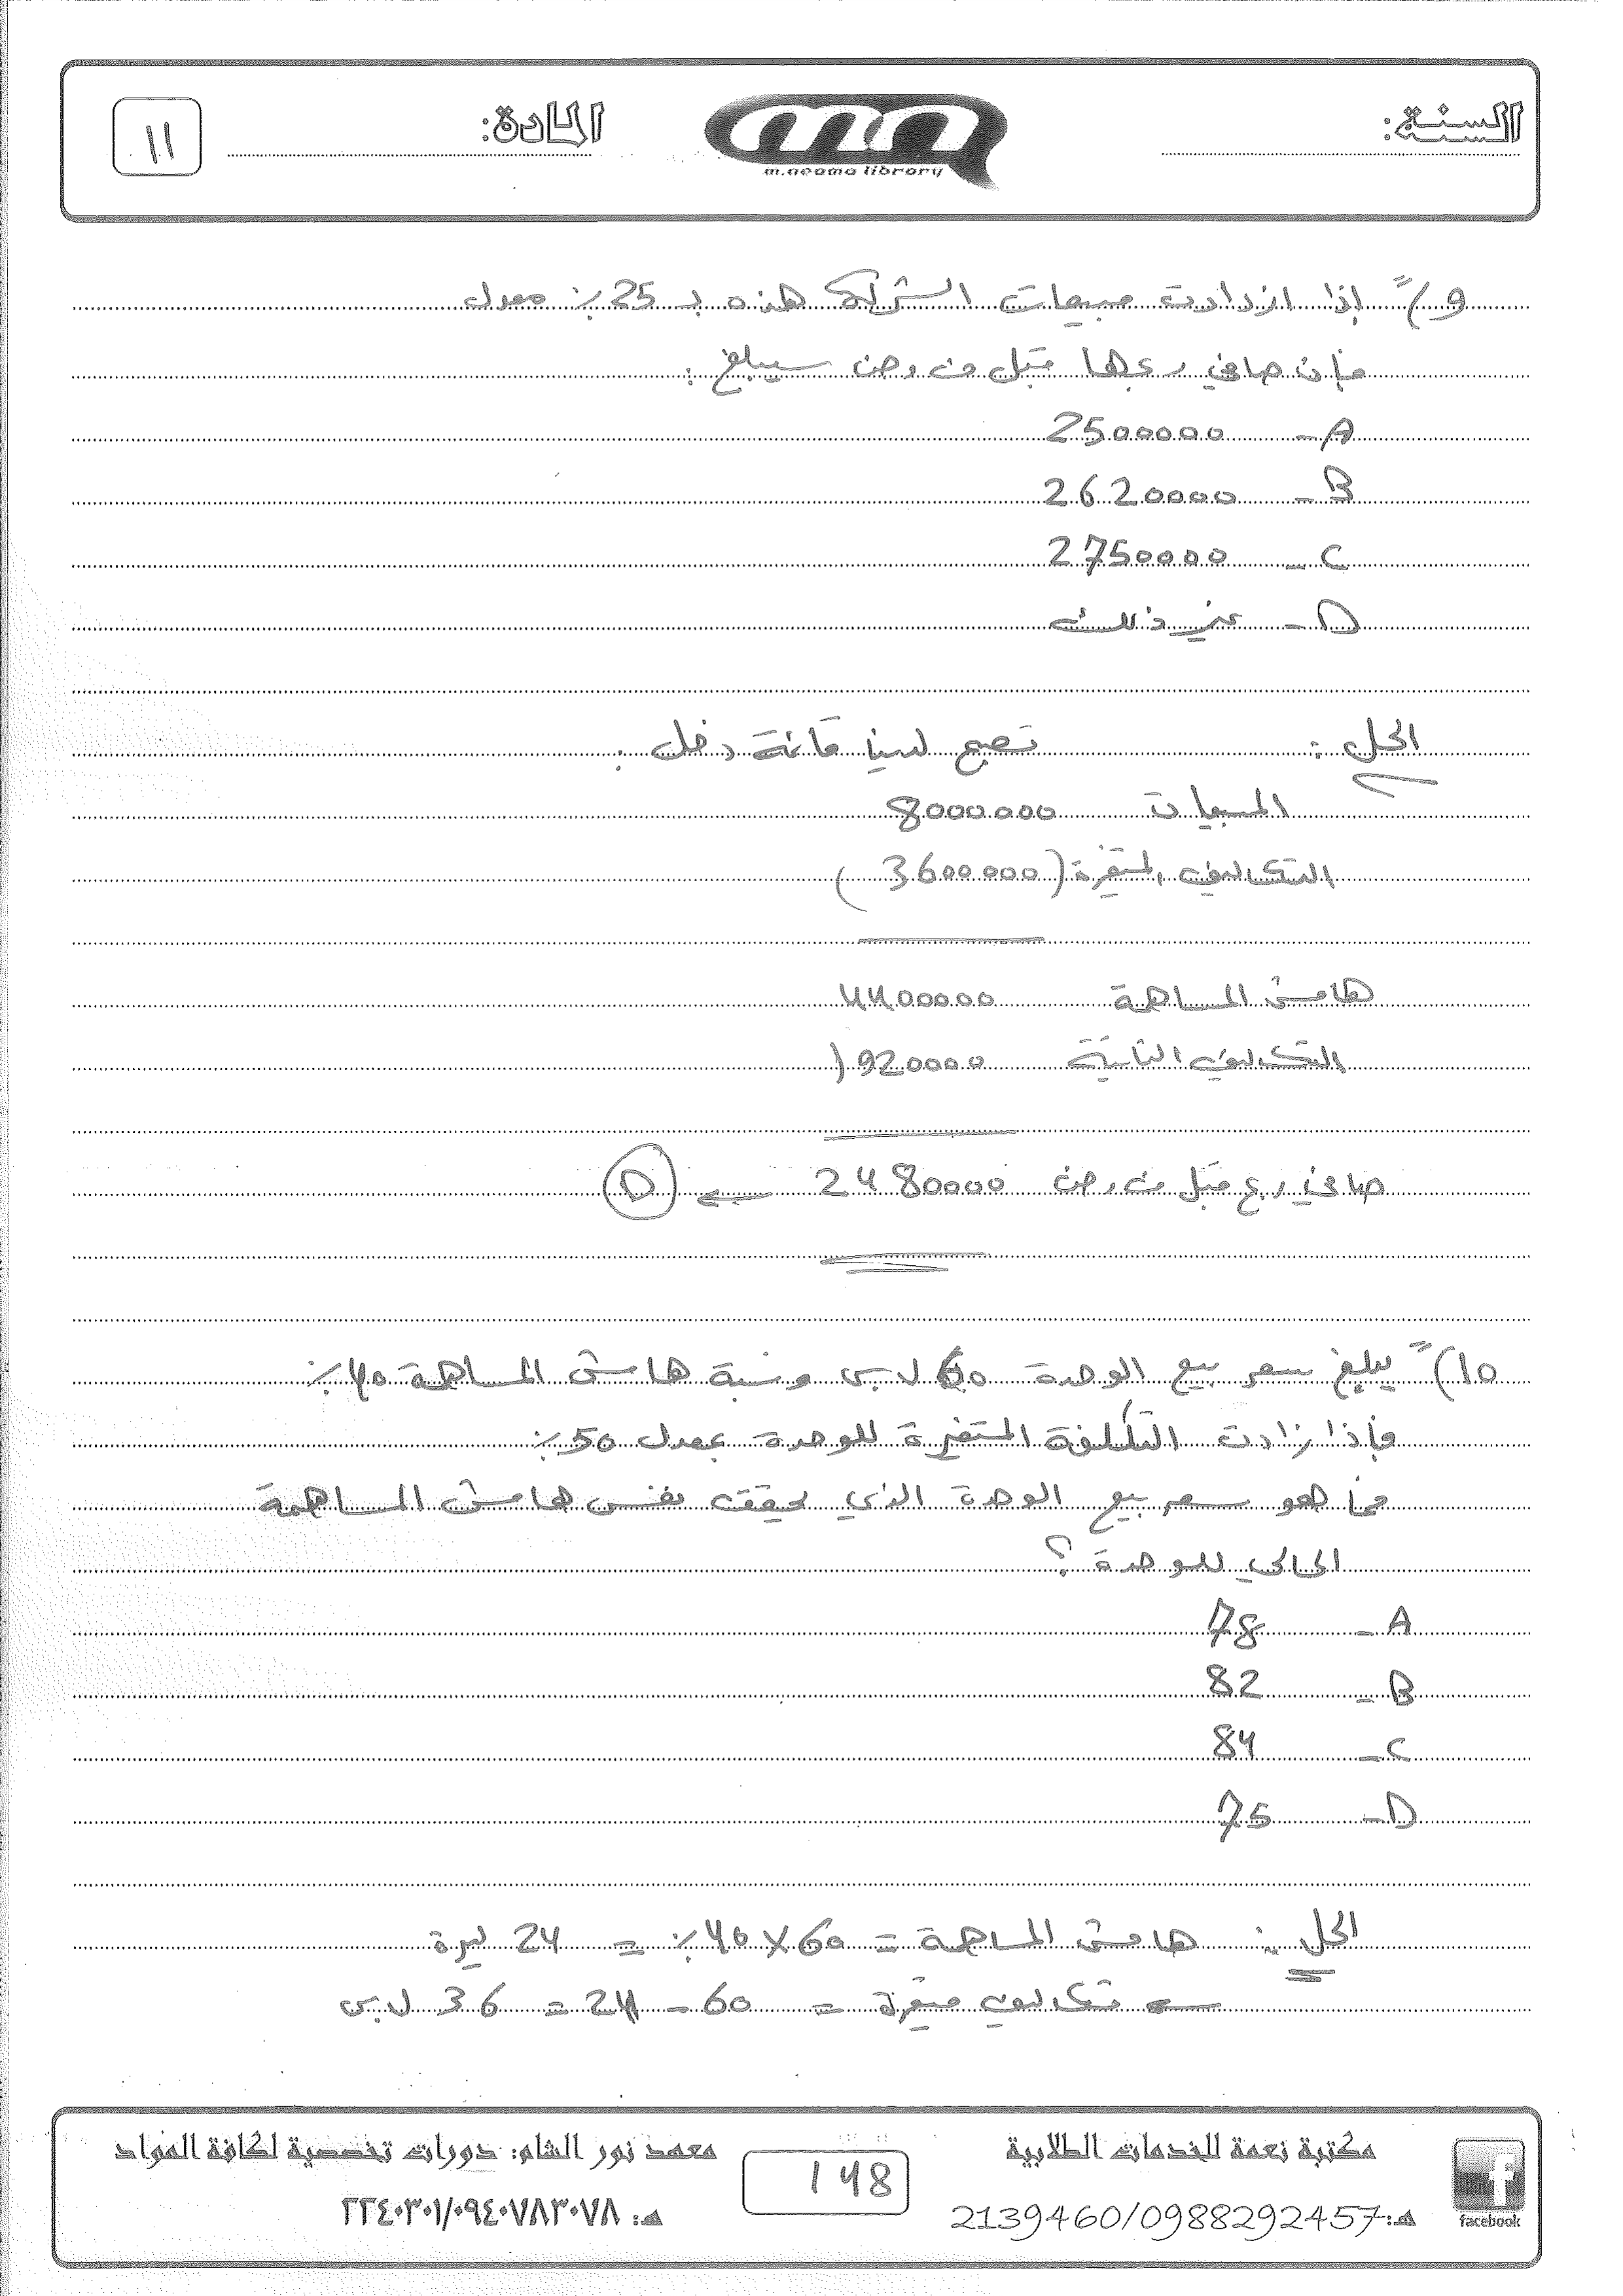 السنة:
m.neama library
المادة:
١١
9)ً إذا ازدادت مبيعات الشركة هذه بـ 25% معدل
فإن صافي ربحها قبل ف وض سيبلغ:
A- 2500000
B- 2620000
C- 2750000
D- غير ذلك
الحل: تصبح لدينا قائمة دخل:
المبيعات 8000000
التكاليف المتغيرة (3600000)
هامش المساهمة 4400000
التكاليف الثابتة 1920000
صافي ربح قبل ف وض 2480000 ← D
10)ً يبلغ سعر بيع الوحدة 60 ل.س ونسبة هامش المساهمة 40%
فإذا زادت التكلفة المتغيرة للوحدة بمعدل 50%
فما هو سعر بيع الوحدة الذي يحقق نفس هامش المساهمة
الحالي للوحدة؟
A- 78
B- 82
C- 84
D- 75
الحل: هامش المساهمة = 60 × 40% = 24 ليرة
← تكاليف متغيرة = 60 - 24 = 36 ل.س
مكتبة نعمة للخدمات الطلابية
هـ: 2139460/0988292457
facebook
148
معهد نور الشام: دورات تخصصية لكافة المواد
هـ: ٢٢٤٠٣٠١/٠٩٤٠٧٨٣٠٧٨